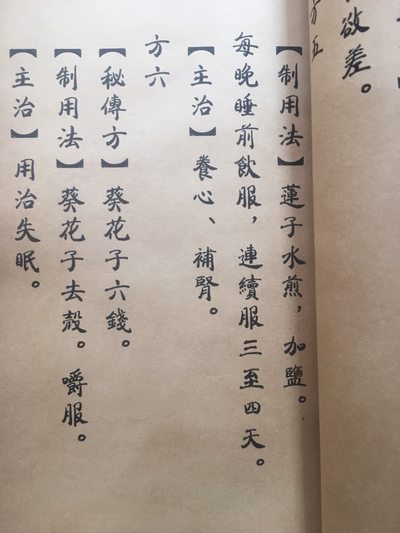 欲差。
方五
【制用法】蓮子水煎，加鹽。
每晚睡前飲服，連續服三至四天。
【主治】養心、補腎。
方六
【秘傳方】葵花子六錢。
【制用法】葵花子去殼。嚼服。
【主治】用治失眠。